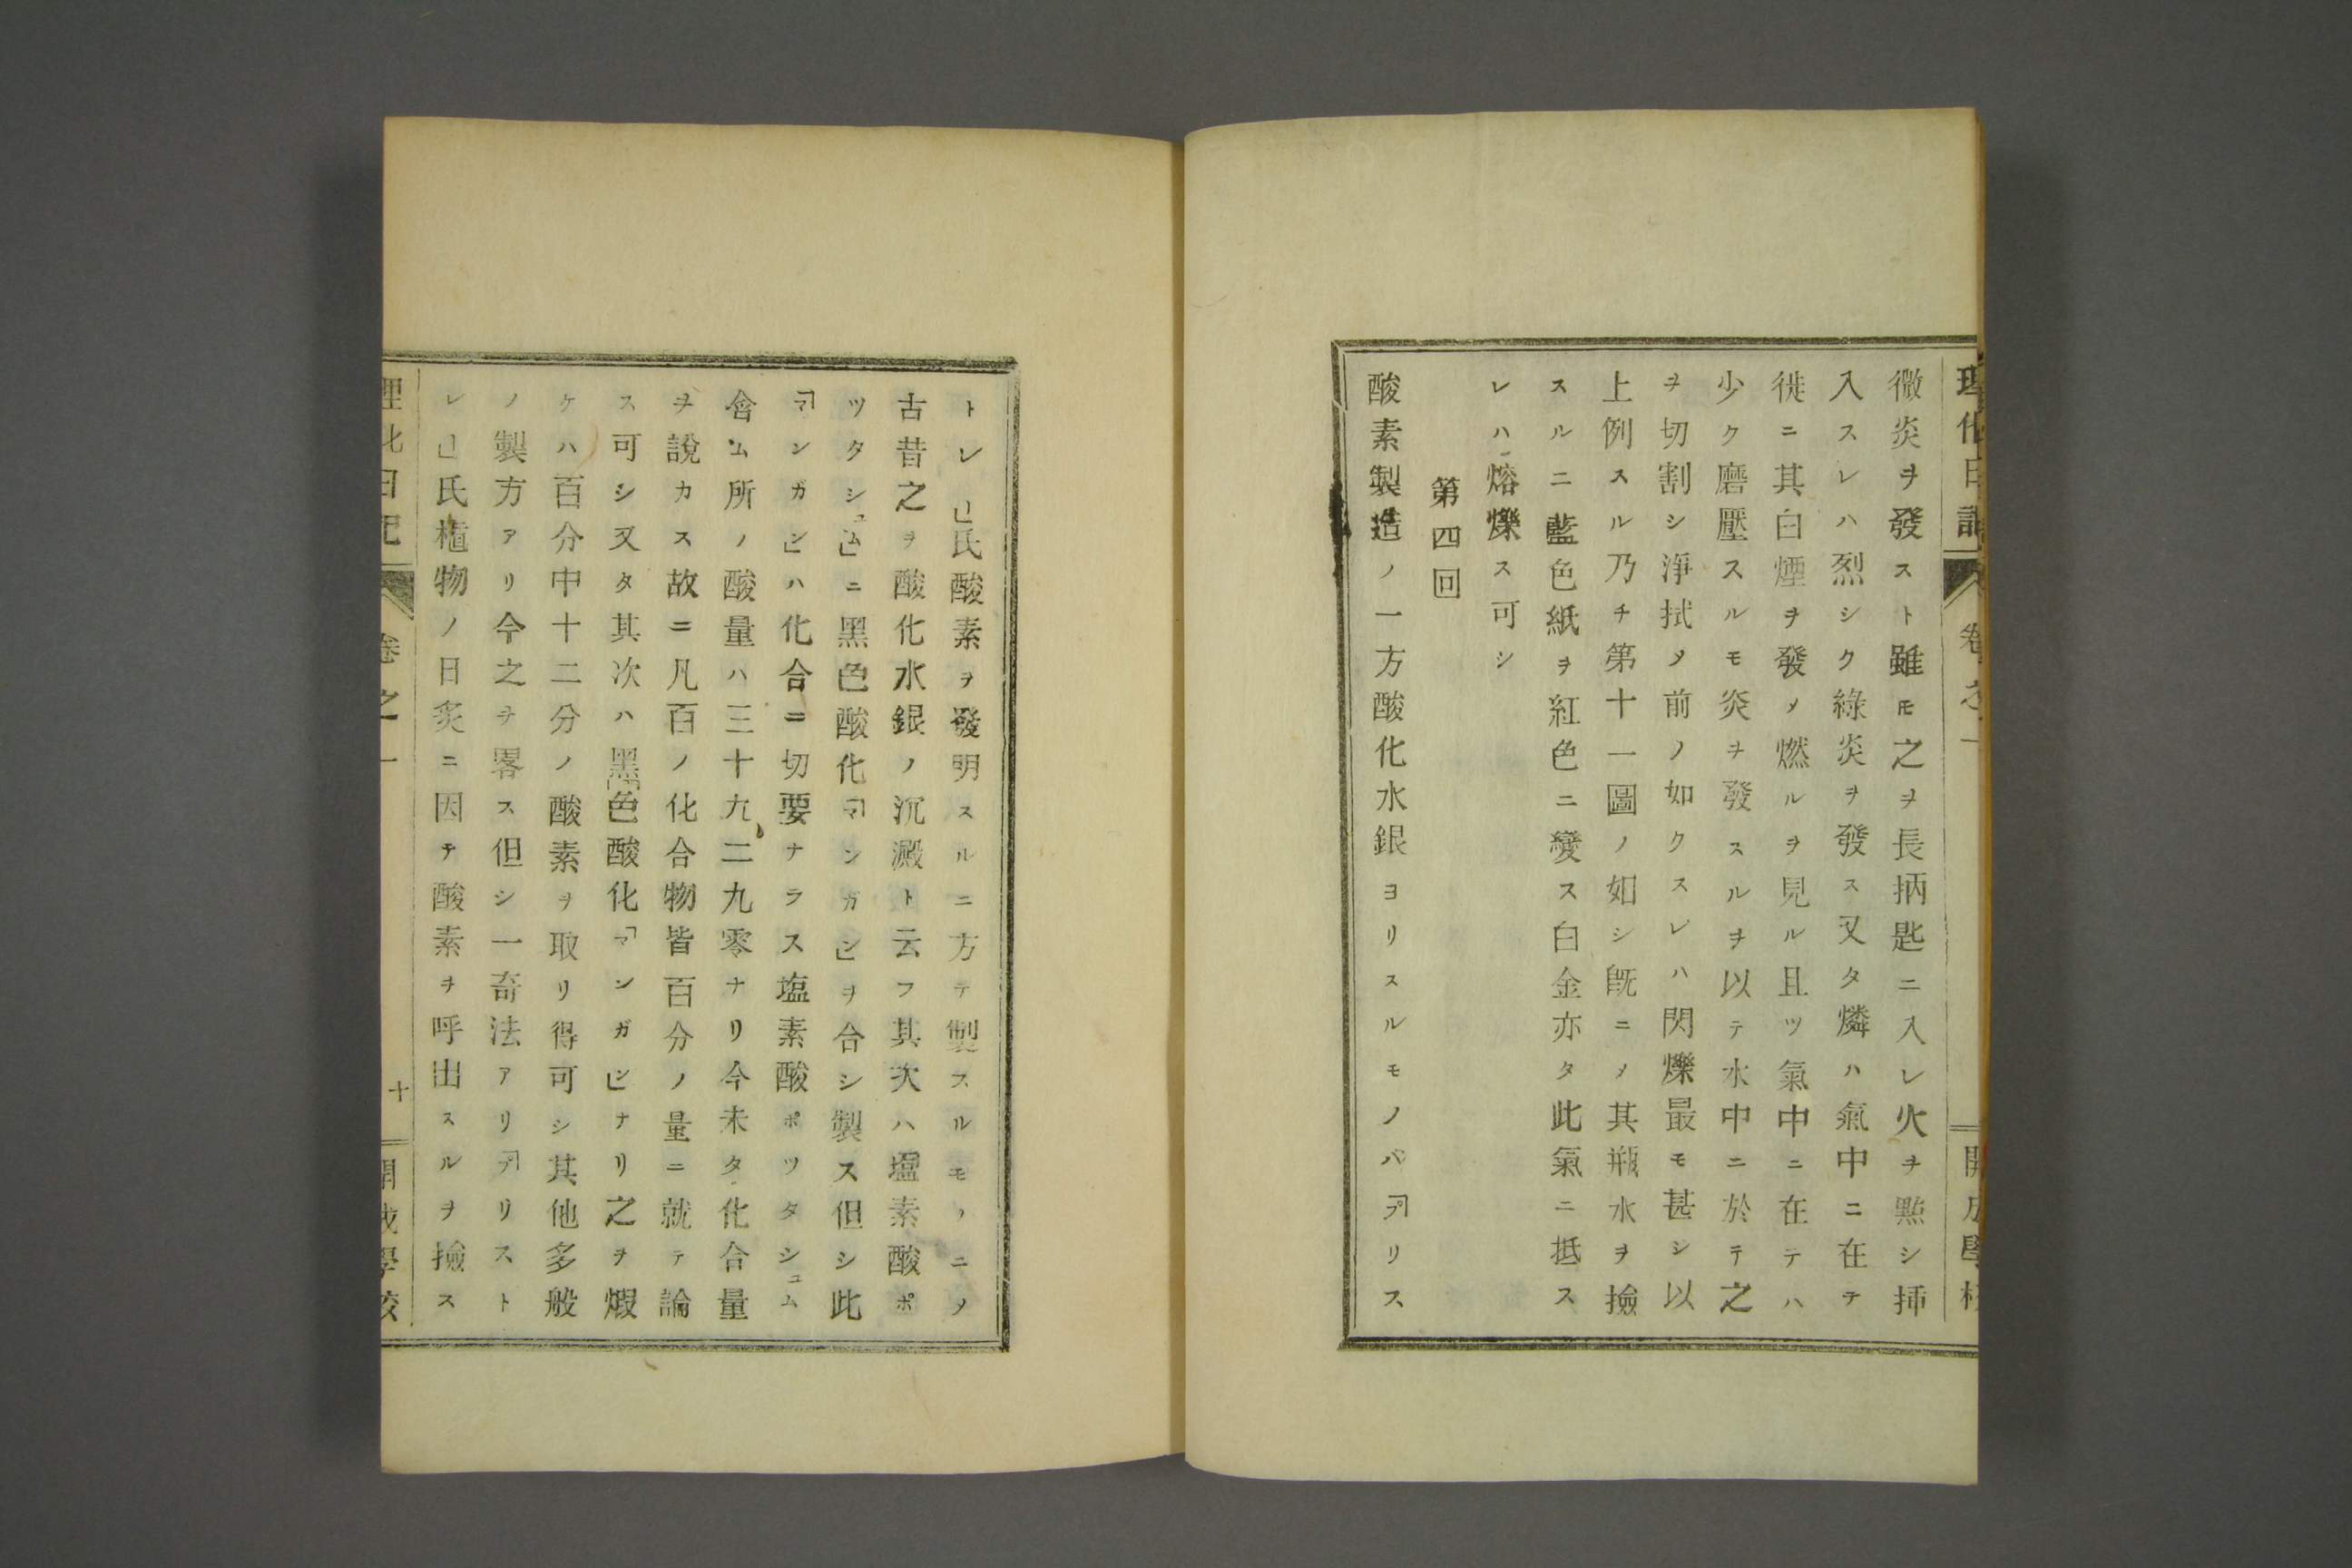 理化日記
卷之一
開成學校
微炎ヲ發スト雖モ之ヲ長柄匙ニ入レ火ヲ點シ揷
入スレハ烈シク綠炎ヲ發ス又タ燐ハ氣中ニ在テ
徙ニ其白煙ヲ發メ燃ルヲ見ル且ツ氣中ニ在テハ
少ク磨壓スルモ炎ヲ發スルヲ以テ水中ニ於テ之
ヲ切割シ淨拭メ前ノ如クスレハ閃爍最モ甚シ以
上例スル乃チ第十一圖ノ如シ旣ニメ其瓶水ヲ撿
スルニ藍色紙ヲ紅色ニ變ス白金亦タ此氣ニ抵ス
レハ熔爍ス可シ
第四回
酸素製造ノ一方酸化水銀ヨリスルモノバ「アリス
トレ」氏酸素ヲ發明スルニ方テ製スルモノニメ
古昔之ヲ酸化水銀ノ沉澱ト云フ其次ハ「塩素酸ポ
ツタシュム」ニ黑色酸化「マンガン」ヲ合シ製ス但シ此
「マンガン」ハ化合ニ切要ナラス塩素酸ポツタシュム
含ム所ノ酸量ハ三十九二九零ナリ今未タ化合量
ヲ說カス故ニ凡百ノ化合物皆百分ノ量ニ就テ論
ス可シ又タ其次ハ黑「色酸化「マンガン」ナリ之ヲ煆
ケハ百分中十二分ノ酸素ヲ取リ得可シ其他多般
ノ製方アリ今之ヲ畧ス但シ一奇法アリ「アリスト
レ」氏植物ノ日炙ニ因テ酸素ヲ呼出スルヲ撿ス
理化日記
卷之一
十
開成學校